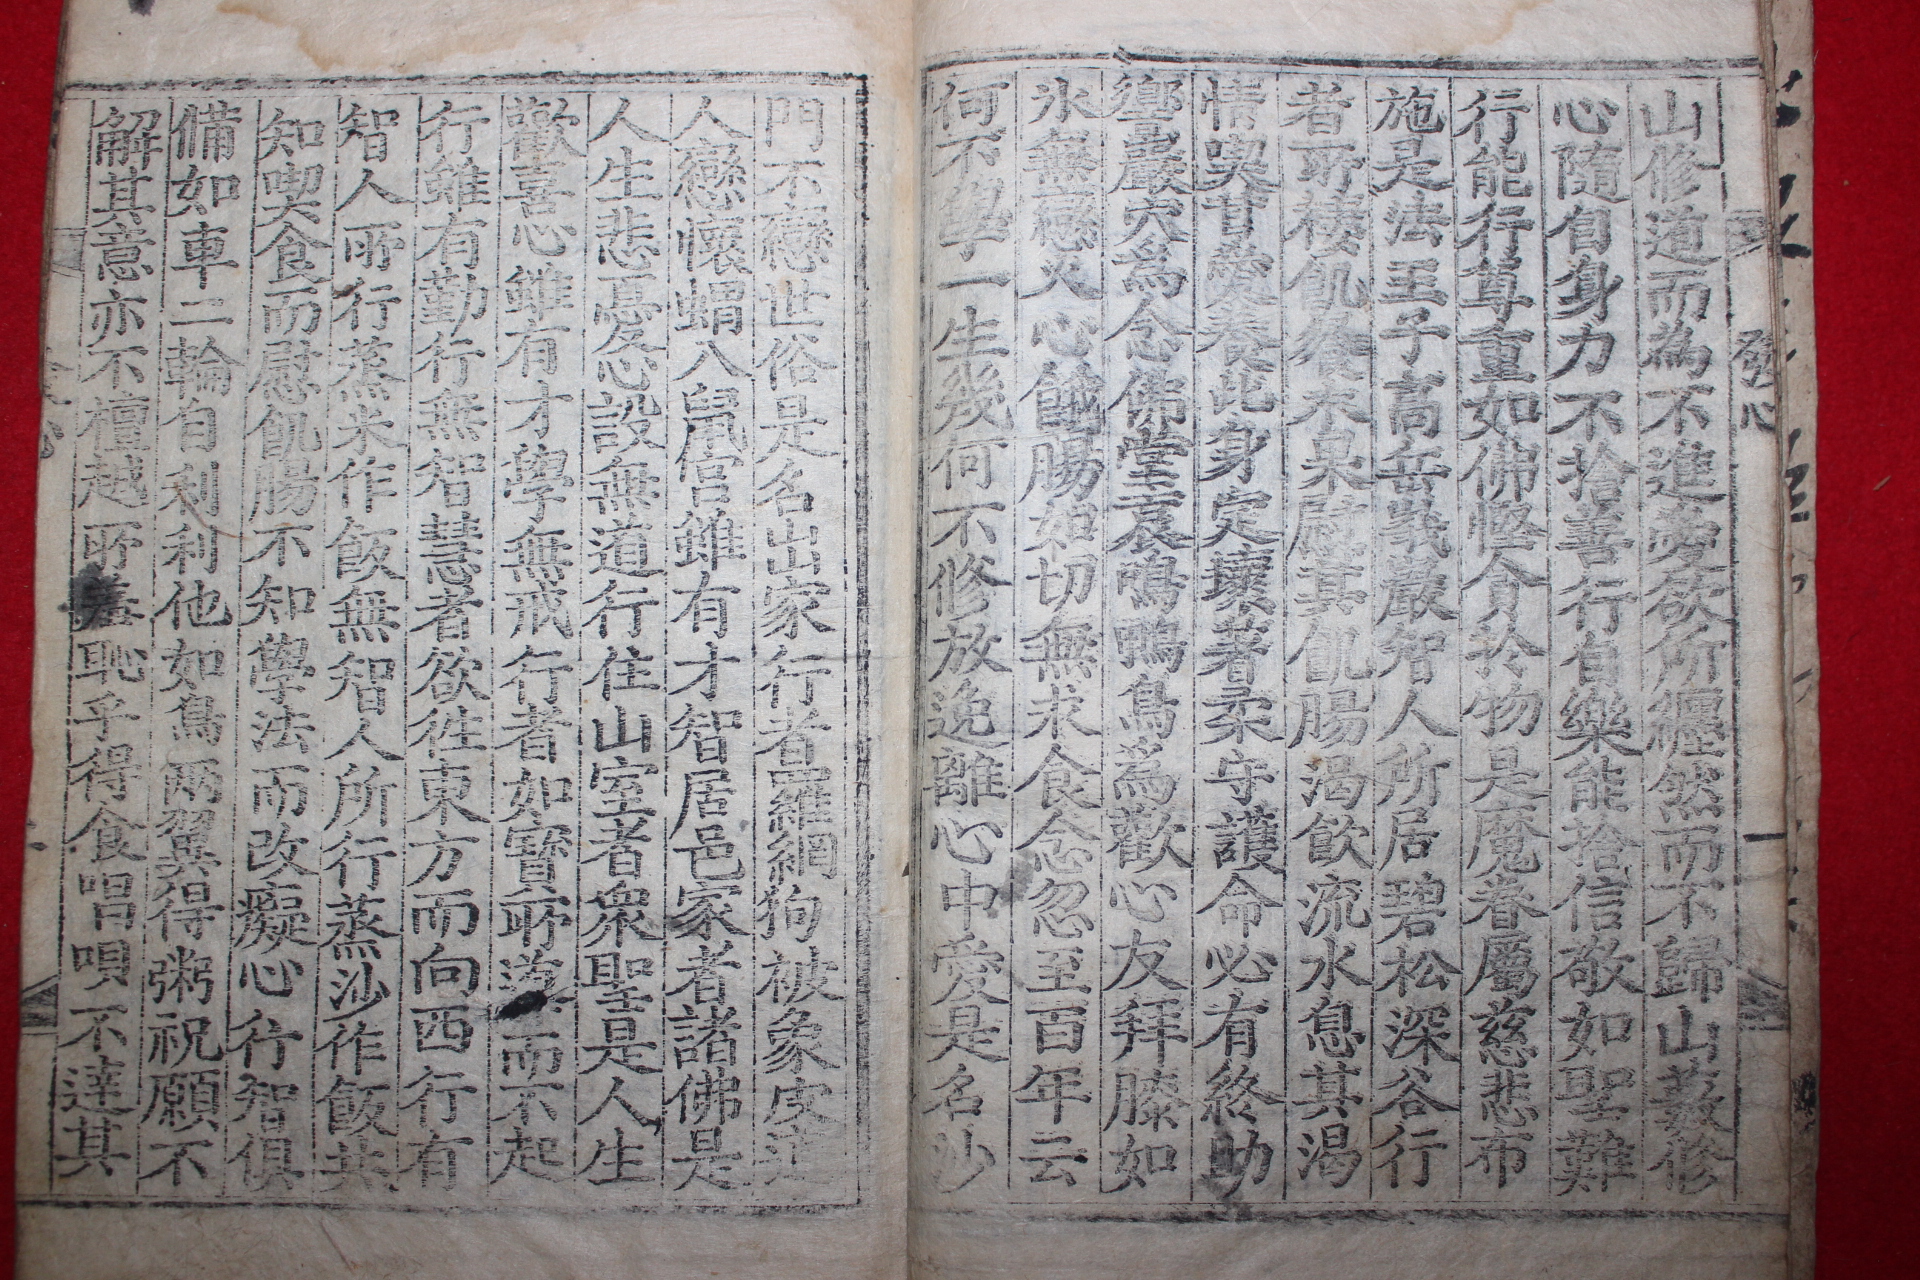 山修道而為不進愛欲所纒然而不歸山藪修
心隨自身力不捨善行自樂能捨信敬如聖難
行能行尊重如佛慳貪扵物是魔眷屬慈悲布
施是法王子高岳峩巖智人所居碧松深谷行
者所捿飢飡木果慰其飢膓渴飮流水息其渴
情喫甘愛養此身定壞著柔守護命必有終助
響巖穴為念佛堂哀鳴鴨鳥為歡心友拜膝如
氷無戀火心餓膓如切無求食念忽至百年云
何不學一生幾何不修放逸離心中愛是名沙
門不戀世俗是名出家行者羅網狗被象皮道
人戀懷蝟入鼠宮雖有才智居邑家者諸佛是
人生悲憂心設無道行住山室者衆聖是人生
歡喜心雖有才學無戒行者如寳所導而不起
行雖有勤行無智慧者欲徃東方而向西行有
智人所行蒸米作飯無智人所行蒸沙作飯共
知喫食而慰飢膓不知學法而改癡心行智俱
備如車二輪自利利他如鳥兩翼得粥祝願不
解其意亦不檀越所羞耻乎得食唱唄不達其
發心